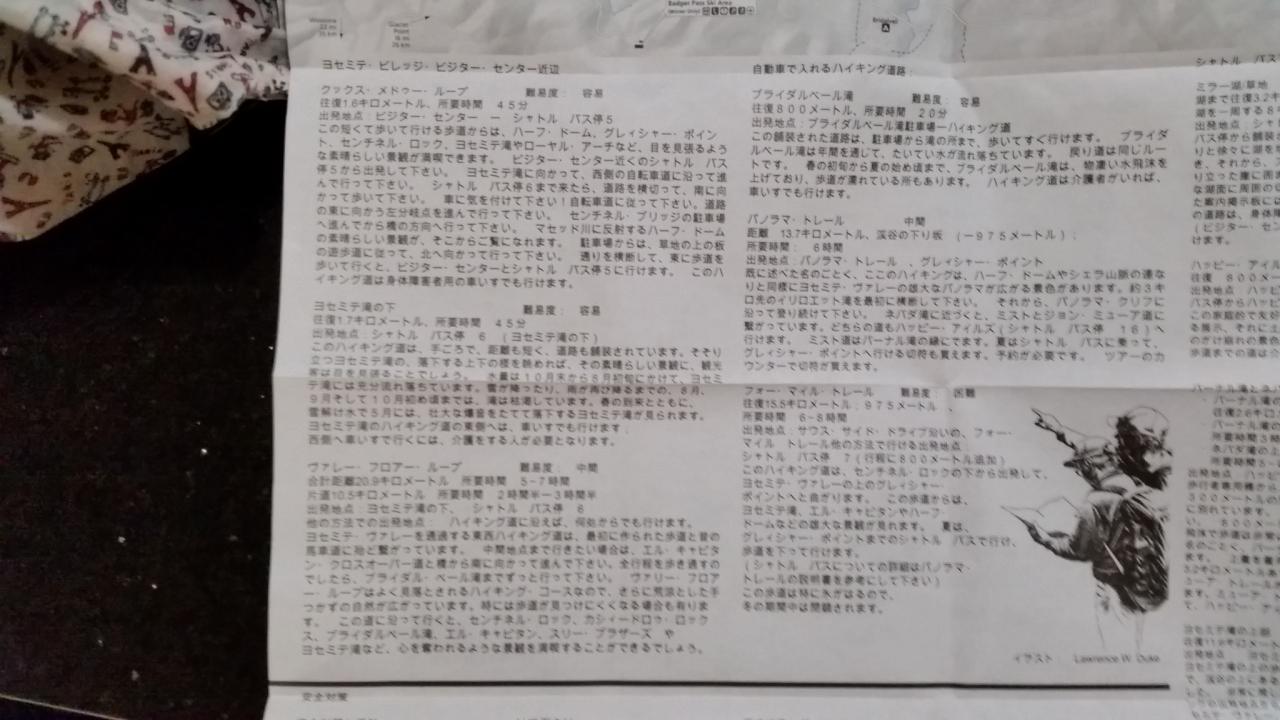 Badger Pass Ski Area
Glacier
Point
ヨセミテ・ビレッジ・ビジター・センター近辺
クックス・メドゥー・ループ 難易度: 容易
往復1.6キロメートル、所要時間 45分
出発地点：ビジター・センター － シャトル バス停5
この短くて歩いて行ける歩道からは、ハーフ・ドーム、グレィシャー・ポイン
ト、センチネル・ロック、ヨセミテ滝やローヤル・アーチなど、目を見張るよう
な素晴らしい景観が満喫できます。 ビジター・センター近くのシャトル バス
停5から出発して下さい。 ヨセミテ滝に向かって、西側の自転車道に沿って進
んで行って下さい。 シャトル バス停6まで来たら、道路を横切って、南に向
かって歩いて下さい。 車に気を付けて下さい！自転車道に従って下さい。道路
の東に向かう左分岐点を進んで行って下さい。 センチネル・ブリッジの駐車場
へ進んでから橋の方向へ行って下さい。 マセッド川に反射するハーフ・ドーム
の素晴らしい景観が、そこからご覧になれます。 駐車場からは、草地の上の板
の遊歩道に従って、北へ向かって行って下さい。 通りを横断して、東に歩道を
歩いて行くと、ビジター・センターとシャトル バス停5に行けます。 このハ
イキング道は身体障害者用の車いすでも行けます。
ヨセミテ滝の下 難易度: 容易
往復1.7キロメートル、所要時間 45分
出発地点：シャトル バス停 6 （ヨセミテ滝の下）
このハイキング道は、手ごろで、距離も短く、道路も舗装されています。そそり
立つヨセミテ滝の、落下する上下の様を眺めれば、その素晴らしい景観に、観光
客は目を見張ることでしょう。 水量は10月末から8月初旬にかけて、ヨセミ
テ滝には充分流れ落ちています。雪が降ったり、雨が再び降るまでの、8月、
9月そして10月初め頃までは、滝は枯渇しています。春の到来とともに、
雪解け水で5月には、壮大な爆音をたてて落下するヨセミテ滝が見られます。
ヨセミテ滝のハイキング道の東側へは、車いすでも行けます;
西側へ車いすで行くには、介護をする人が必要となります。
ヴァレー・フロアー・ループ 難易度: 中間
合計距離20.9キロメートル 所要時間 5-7時間
片道10.5キロメートル 所要時間 2時間半-3時間半
出発地点：ヨセミテ滝の下、 シャトル バス停 6
他の方法での出発地点： ハイキング道に沿えば、何処からでも行けます。
ヨセミテ・ヴァレーを通過する東西ハイキング道は、最初に作られた歩道と昔の
馬車道に殆ど繋がっています。 中間地点まで行きたい場合は、エル・キャピタ
ン・クロスオーバー道と橋から南に向かって進んで下さい。全行程を歩き通すの
でしたら、ブライダル・ベール滝までずっと行って下さい。 ヴァリー・フロア
ー・ループはよく見落とされるハイキング・コースなので、さらに荒涼とした手
つかずの自然が広がっています。時には歩道が見つけにくくなる場合も有りま
す。 この道に沿って行くと、センチネル・ロック、カシィードロゥ・ロック
ス、ブライダルベール滝、エル・キャピタン、スリー・ブラザーズ や
ヨセミテ滝など、心を奪われるような景観を満喫することができるでしょう。
安全対策
自動車で入れるハイキング道路:
ブライダルベール滝 難易度: 容易
往復800メートル、所要時間 20分
出発地点：ブライダルベール滝駐車場－ハイキング道
この舗装された道路は、駐車場から滝の所まで、歩いてすぐ行けます。 ブライダ
ルベール滝は年間を通して、たいてい水が流れ落ちています。 戻り道は同じルー
トです。 春の初旬から夏の始め頃まで、ブライダルベール滝は、物凄い水飛沫を
上げており、歩道が濡れている所もあります。 ハイキング道は介護者がいれば、
車いすでも行けます。
パノラマ・トレール 中間
距離 13.7キロメートル、渓谷の下り坂 （－975メートル）;
所要時間： 6時間
出発地点：パノラマ・トレール 、グレィシャー・ポイント
既に述べた名のごとく、ここのハイキングは、ハーフ・ドームやシェラ山脈の連な
りと同様にヨセミテ・ヴァレーの雄大なパノラマが広がる景色があります。約3キ
ロ先のイリロエット滝を最初に横断して下さい。 それから、パノラマ・クリフに
沿って登り続けて下さい。 ネバダ滝に近づくと、ミストとジョン・ミューア道に
繋がっています。どちらの道もハッピー・アイルズ（シャトル バス停 16）へ
行けます。 ミスト道はバーナル滝の縁にでます。夏はシャトル バスに乗って、
グレィシャー・ポイントへ行ける切符も買えます。予約が必要です。 ツアーのカ
ウンターで切符が買えます。
フォー・マイル・トレール 難易度: 困難
往復15.5キロメートル；975メートル 、
所要時間 6-8時間
出発地点：サウス・サイド・ドライブ沿いの、フォー・
マイル トレール他の方法で行ける出発地点:
シャトル バス停 7（行程に800メートル追加）
このハイキング道は、センチネル・ロックの下から出発して、
ヨセミテ・ヴァレーの上のグレィシャー・
ポイントへと曲がります。 この歩道からは、
ヨセミテ滝、エル・キャピタンやハーフ・
ドームなどの雄大な景観が見れます。 夏は、
グレィシャー・ポイントまでのシャトル バスで行け、
歩道を下って行けます。
（シャトル バスについての詳細はパノラマ・
トレールの説明書を参考にして下さい）
この歩道は特に氷がはるので、
冬の期間中は閉鎖されます。
イラスト： Lawrence W. Duke
シャトル バス
ミラー湖/草地
湖まで往復3.2キ
ハッピー・アイル
往復 800メー